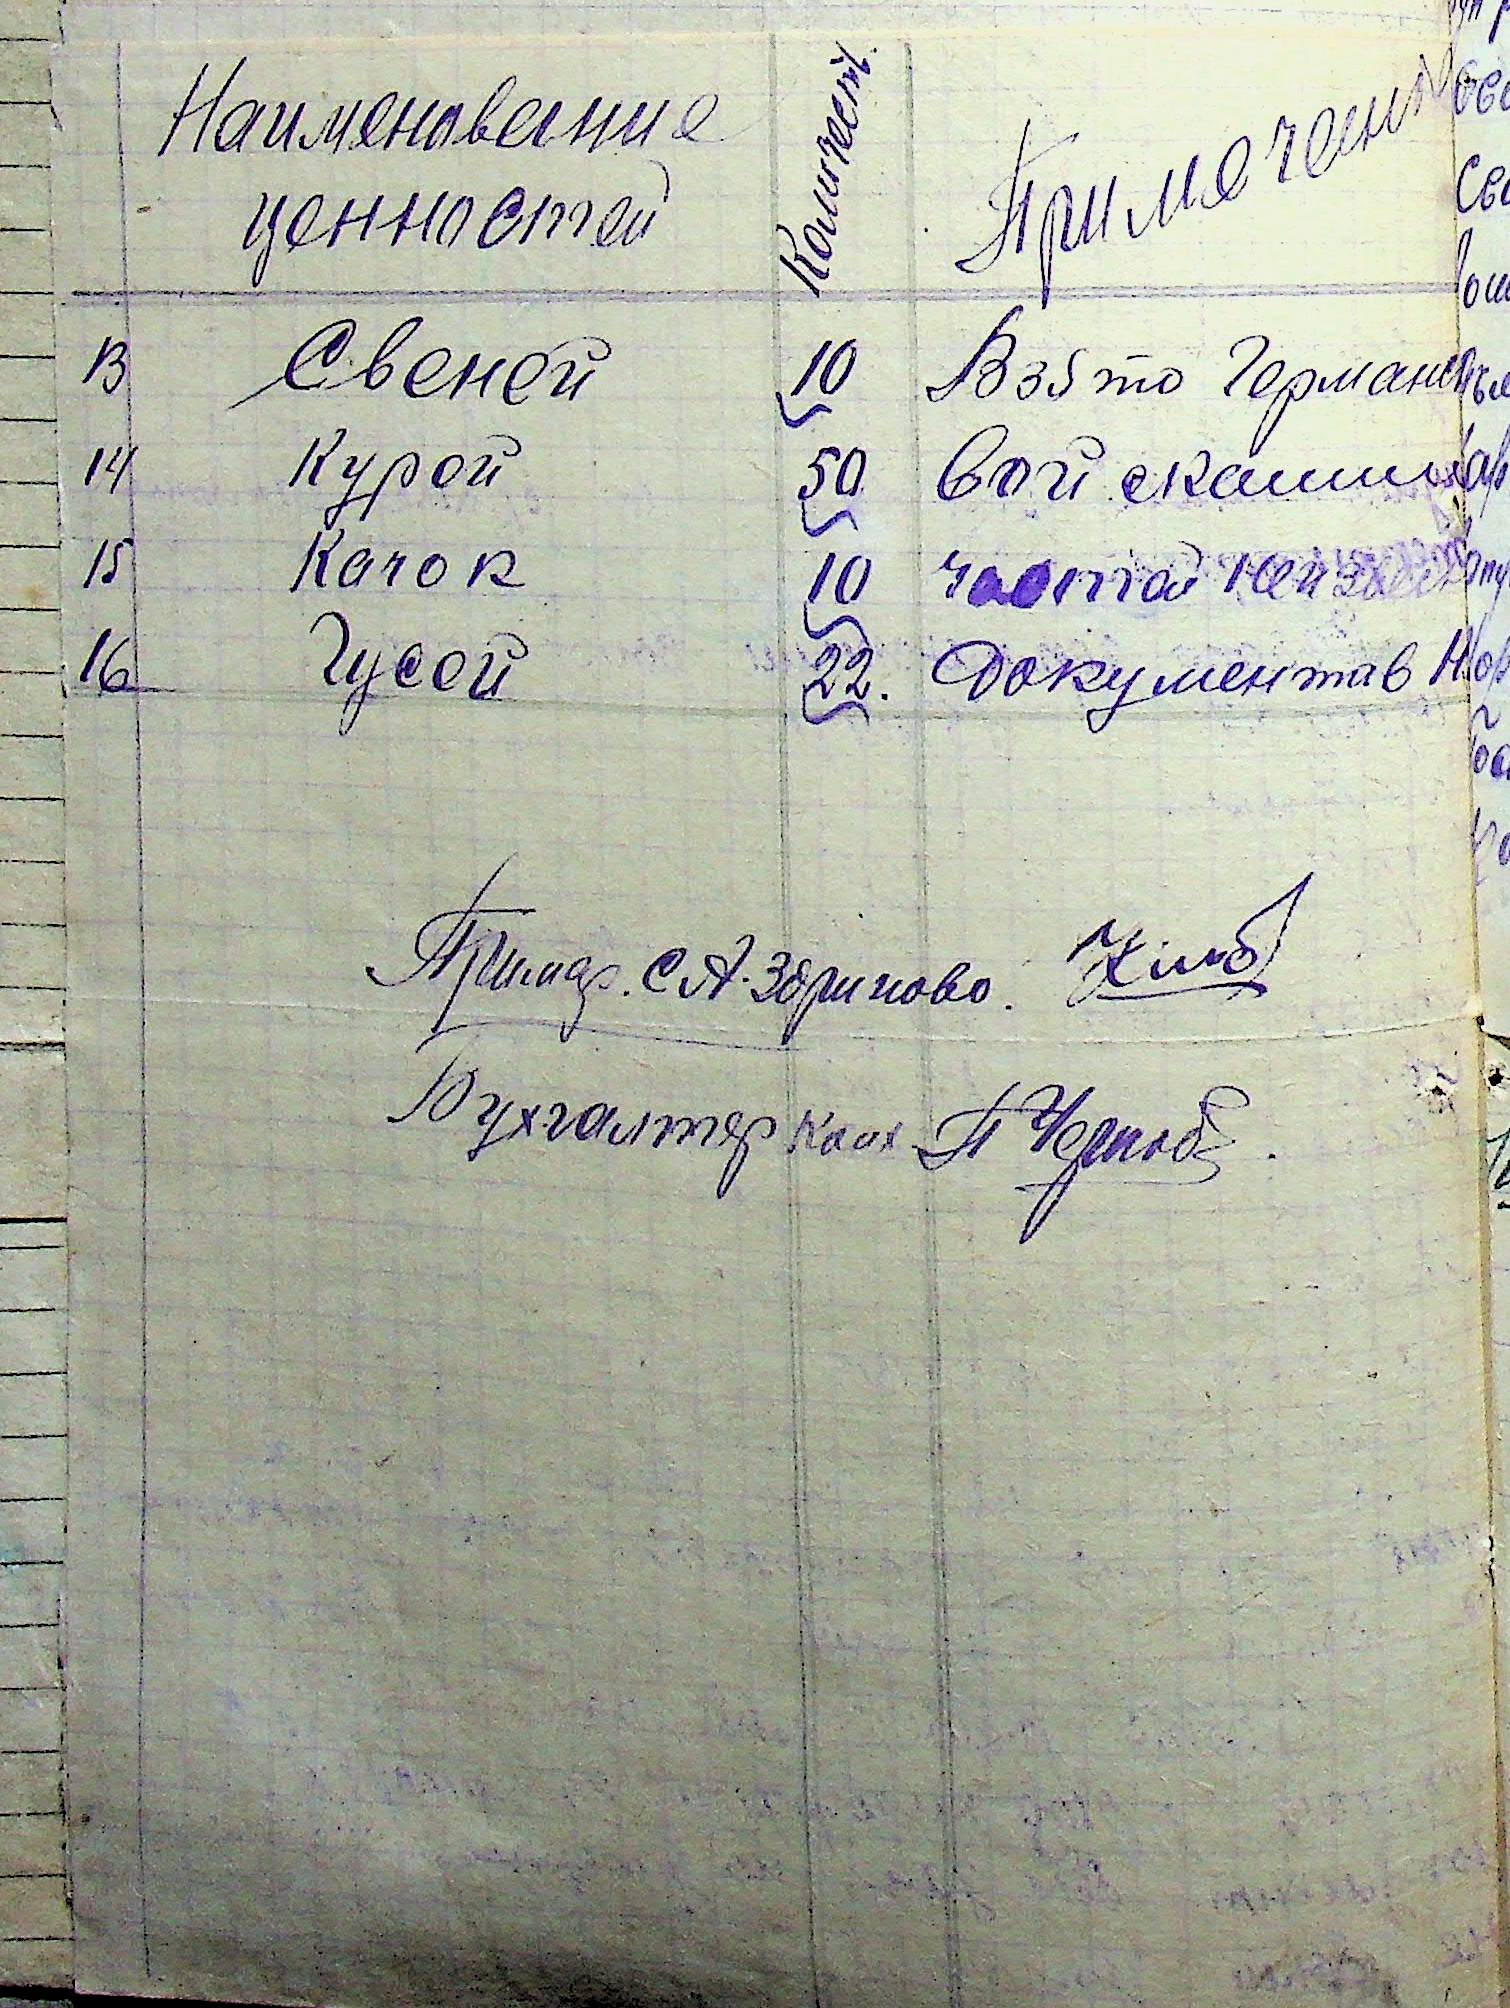 Наименование
ценностей
Количеств.
Примечени
13 Свеней 10 Взято Германск
14 Курой 50 войсками
15 Качок 10 частей Неизвес
16 Гусой 22. Документав Н
Примар. С А. Здриново.
Бухгалтер Колх П Чернов